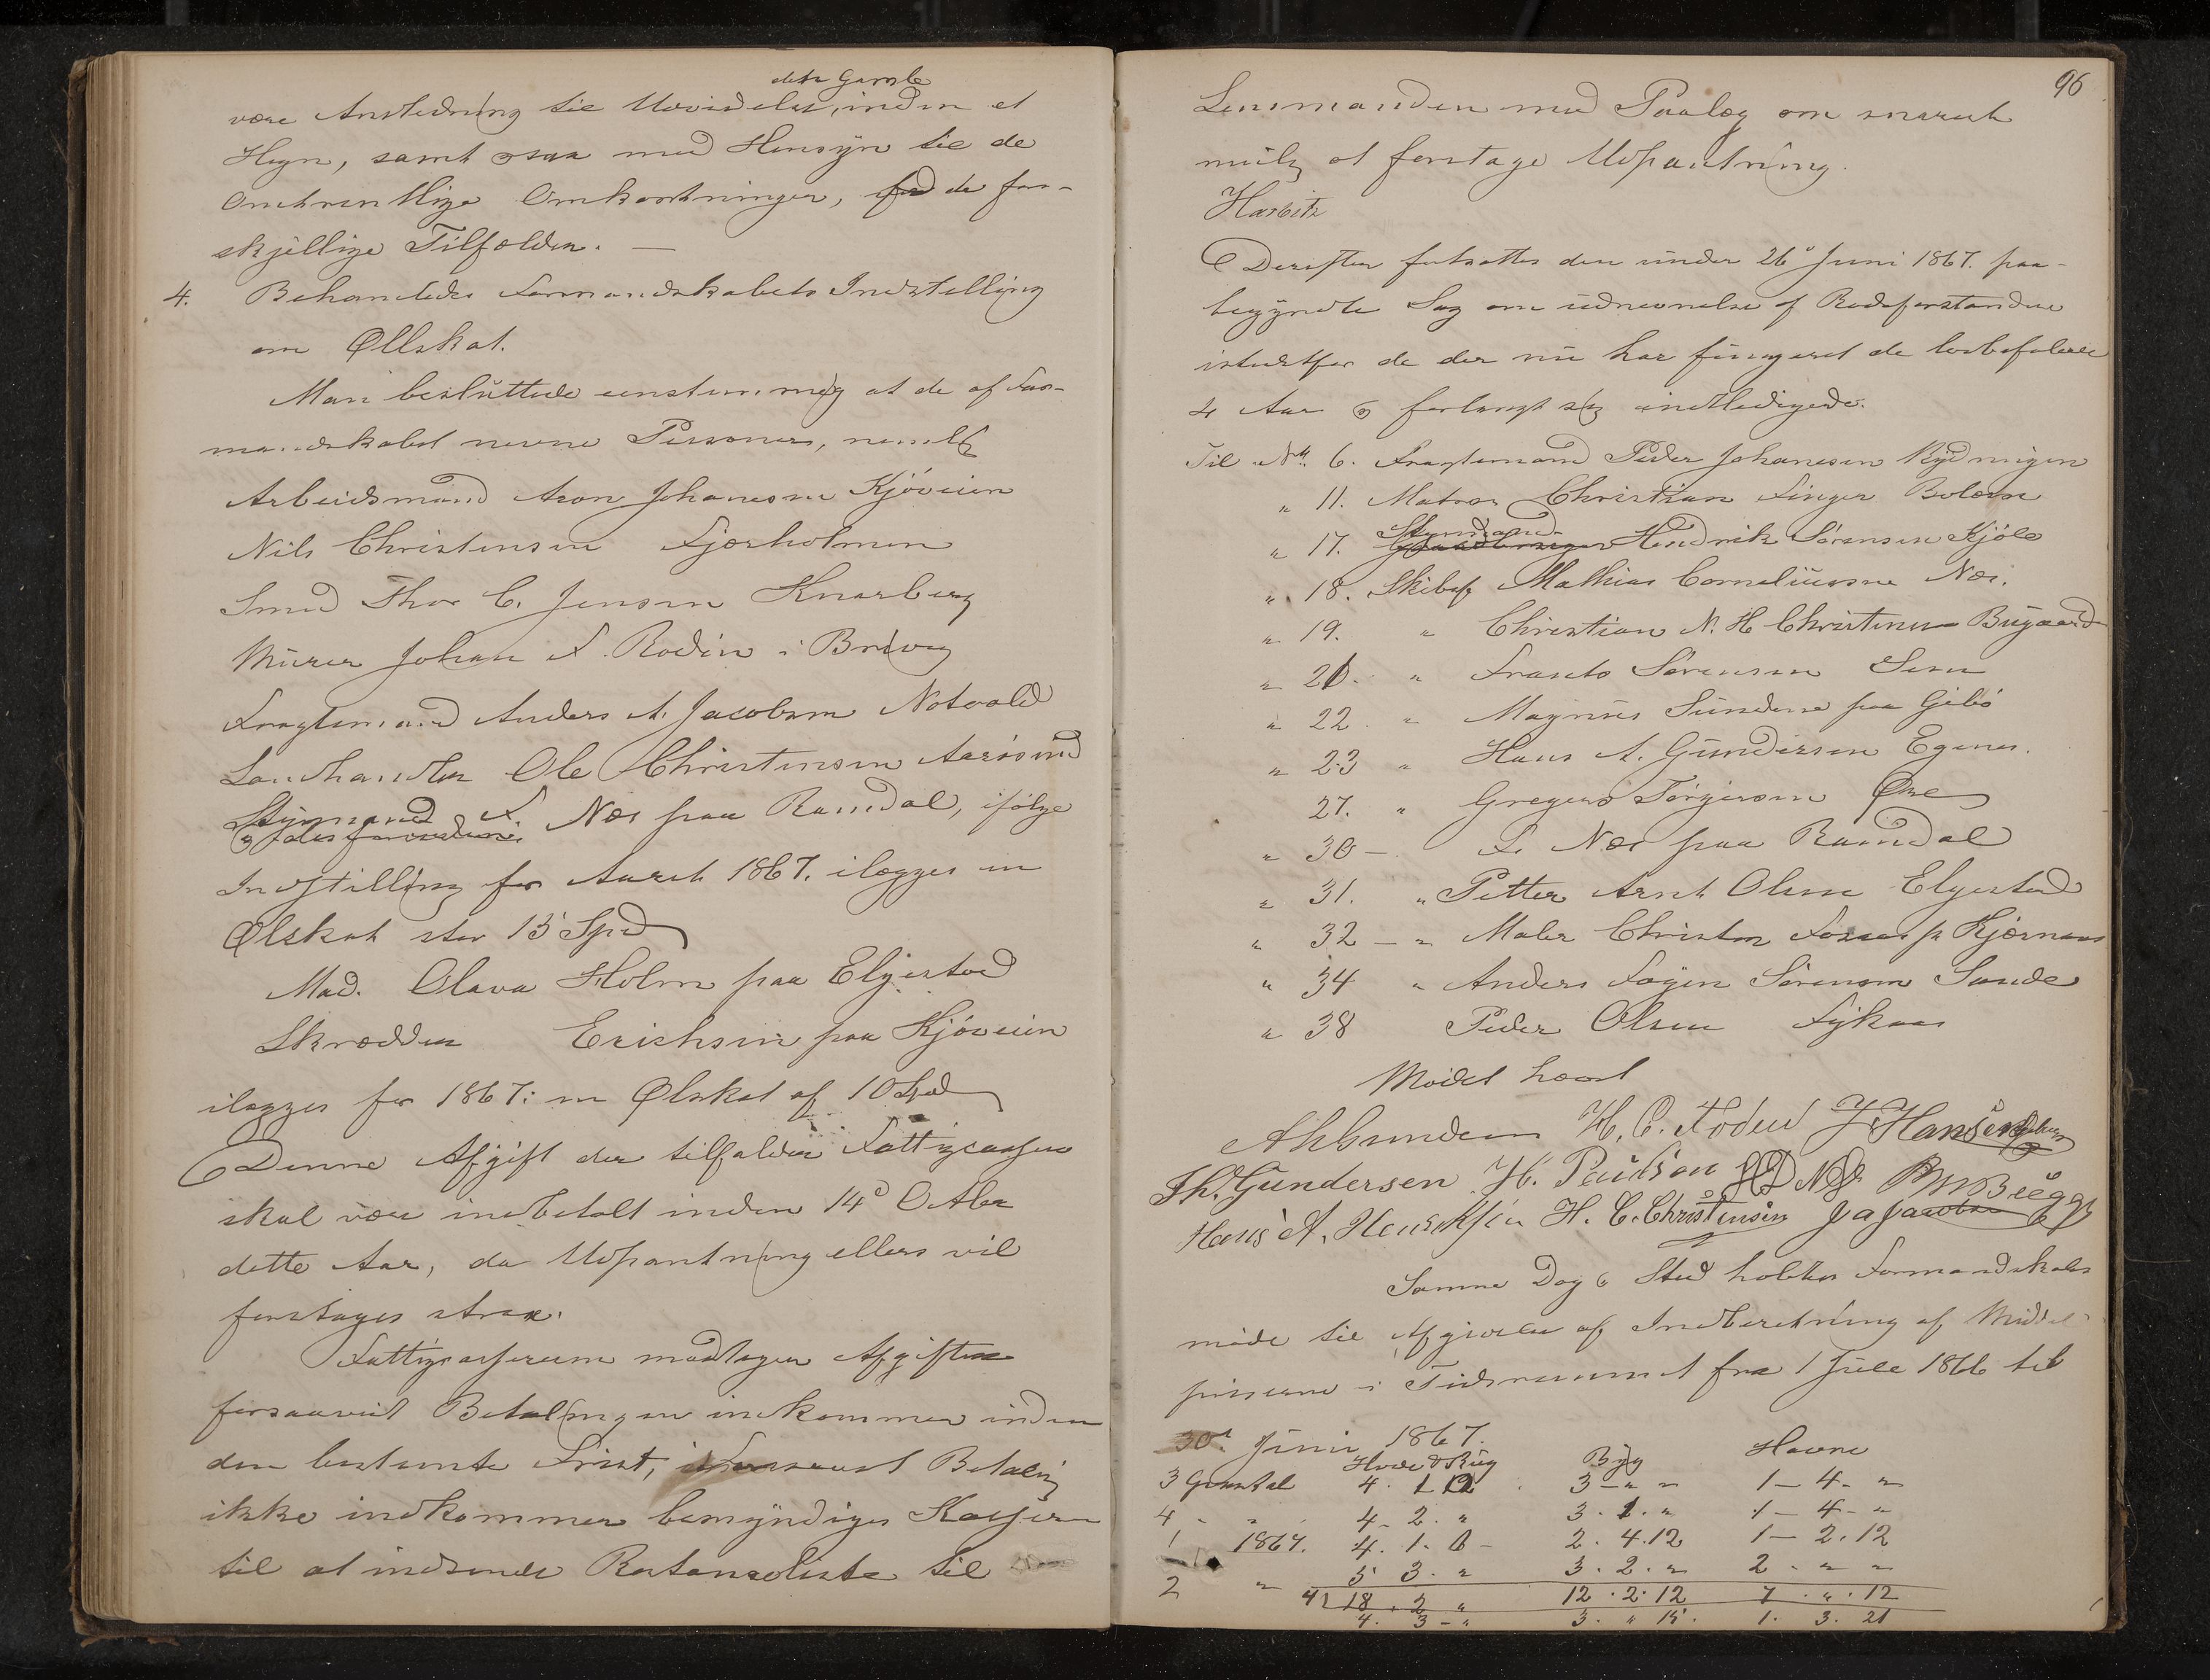 det Gamle
være Anledning til Udvidelse, inden et
Hegn, samt ogsaa med Hensyn til de
Omtrentlige Omkostninger, for de for-
skjellige Tilfælder. —
4. Behandledes Formandskabets Indstilling
om Øllskat.
Man besluttede eenstemmig at de af For-
mandskabet nevne Personer, nemlig
Arbeidsmand Aron Johannesen Kjøveien
Nils Christensen Fjærholmen
Smed Thor C. Jensen Knarberg
Murer Johan F. Bodin i Bredveg
Fragtemand Anders A. Jacobsen Notvold
Landhandler Ole Christensen Aarøsund
Styrmand F. Næs paa Ramdal, ifølge
Indstilling for Aaret 1867. ilægges en
Ølskat stor 15 Spd
Mad. Olava Holm paa Elgestad
Skrædder Erichsen paa Kjøveien
ilægges for 1867: en Ølskat af 10 Spd
Denne Afgift der tilfalder Fattigcassen
skal være indbetalt inden 14d Octbr
dette Aar, da Udpantning ellers vil
foretages strax.
Fattigcassereren modtager Afgiften
forsaavit Betalingen indkommer inden
den bestemte Frist, Betaling
ikke indkommer bemyndiges Kasseren
til at indsende Restanceliste til
96
Lensmanden med Paalæg om snarest
mulig at foretage Udpantning.
Harbitz
Derefter fortsattes den under 26d Juni 1867. paa-
begyndte Sag om udnevnelse af Rodeforstandere
istedetfor de der nu har fungeret de lovbefalede
4 Aar og forlangt sig entledigede.
Til No. 6. Fragtemand Peder Johanesen Rydningen
" 11. Matros Christian Finger Bolærn
" 17. Styrmand Hendrik Sørensen Kjøle
" 18. Skibsf Mathias Corneliussen Næs.
" 19. " Christian N. H. Christensen Bugaard
" 21. " Frants Sørensen Sem
" 22. " Magnus Sundene paa Gibø
" 23 " Hans A. Gundersen Egenes.
27. " Gregers Torgersen Øre
" 30 — F. Næs paa Ramdal
" 31. " Petter Arnt Olsen Elgestad
" 32 — " Maler Christen p. Kjærnaas
" 34 " Anders Føyen Sørensen Sande
" 38 Peder Olsen Fykaas
Mødet hævet
H. C. J. Hansen
Th. Gundersen H. Paulson H D Næs Bugge
Hans A. Henriksen H. C. Christensen J A Jacobsen
Samme Dag & Sted holdtes Formandskabs
møde til Afgivelse af Indberetning af Middel-
priserne i Tidsrummet fra 1 Juli 1866 til
30d Juni 1867.
Hvede & Rug Byg Havre
3 Qvartal 4. 1. 12 3 — " " 1 — 4. "
4 " " 4. 2. " 3. 1. " 1 — 4 — "
1 1867. 4. 1. 6 — 2. 4. 12 1 — 2. 12
2 " 5 3. " 3. 2. " 2. " "
4) 18. 2 " 12. 2. 12 7. ". 12
4. 3 — " 3. " 15. 1. 3. 21